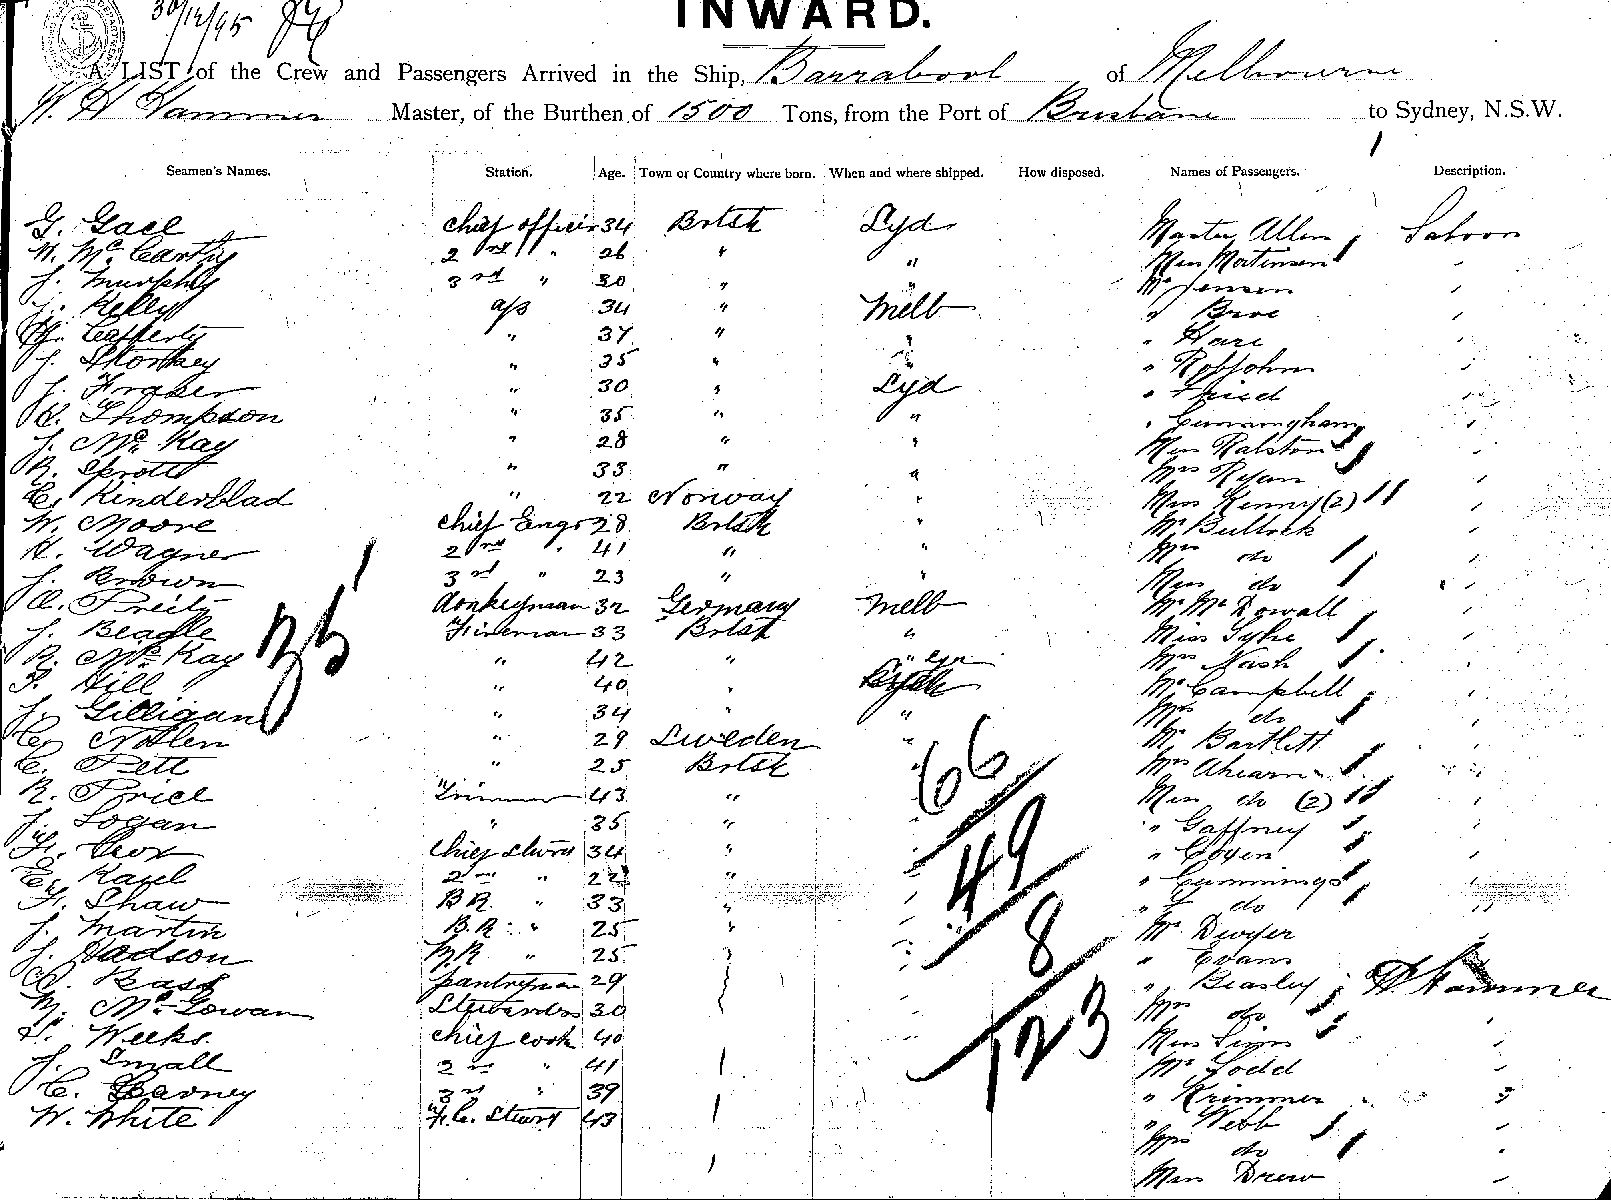 30/12/95
INWARD.
A LIST of the Crew and Passengers Arrived in the Ship, Barrabool of Melbourne
W. H Hammer Master, of the Burthen of 1500 Tons, from the Port of Brisbane to Sydney, N.S.W.
Seamen's Names. Station. Age. Town or Country where born. When and where shipped. How disposed. Names of Passengers. Description.
G. Gael chief officer 34 Brtsh Syd Master Allen Saloon
McCarthy 2nd " 26 " " Miss Mortensen "
J. Murphy 3rd " 30 " " Mr Jensen "
J. Kelly a/s 34 " Melb " "
Cafferty " 37 " " " Hare
J. " 35 " " " Robjohn "
J. Fraser " 30 " Syd "
Thompson " 35 " " " Cunningham "
J. McKay " 28 " " Miss Ralston "
R. Sprott " 33 " " Mrs Ryan "
C. Kinderblad " 22 Norway " Miss Kenny (2) "
W. Moore chief Engr 28 Brtsh " Mr Bullock "
H. Wagner 2nd " 41 " " Mrs do "
J. Brown 3rd " 23 " " Miss do "
donkeyman 32 Germany Melb Mr McDowall "
J. Beagle Fireman 33 Brtsh " Miss "
R. McKay " 42 " " Mrs Nash "
Hill " 40 " Mr Campbell "
J. Gilligan " 34 " " Mrs do "
C. " 29 Sweden " Mr Bartlett "
C. Pett " 25 Brtsh " Mrs Ahearn "
R. Price Trimmer 43 " Miss do (2) "
J. Logan " 35 " " Gaffney "
Cox chief Stwrd 34 " " "
E. 2nd " 22 " " Cummings "
Shaw B.R. " 33 " " do "
J. Martin B.R. " 25 Mr Dwyer
J. Hadson " 25 " Evans
Bass pantryman 29 " Beasley Hammer
M. McGowan Stewardess 30 Mrs do "
Weeks chief cook 40 Miss Sims
J. Small 2nd " 41 Mr Todd "
C. 3rd " 39 " Krimmer
W. White Stwrd 43 " Webb "
Mrs do
Miss Drew "
35
66
49
8
123